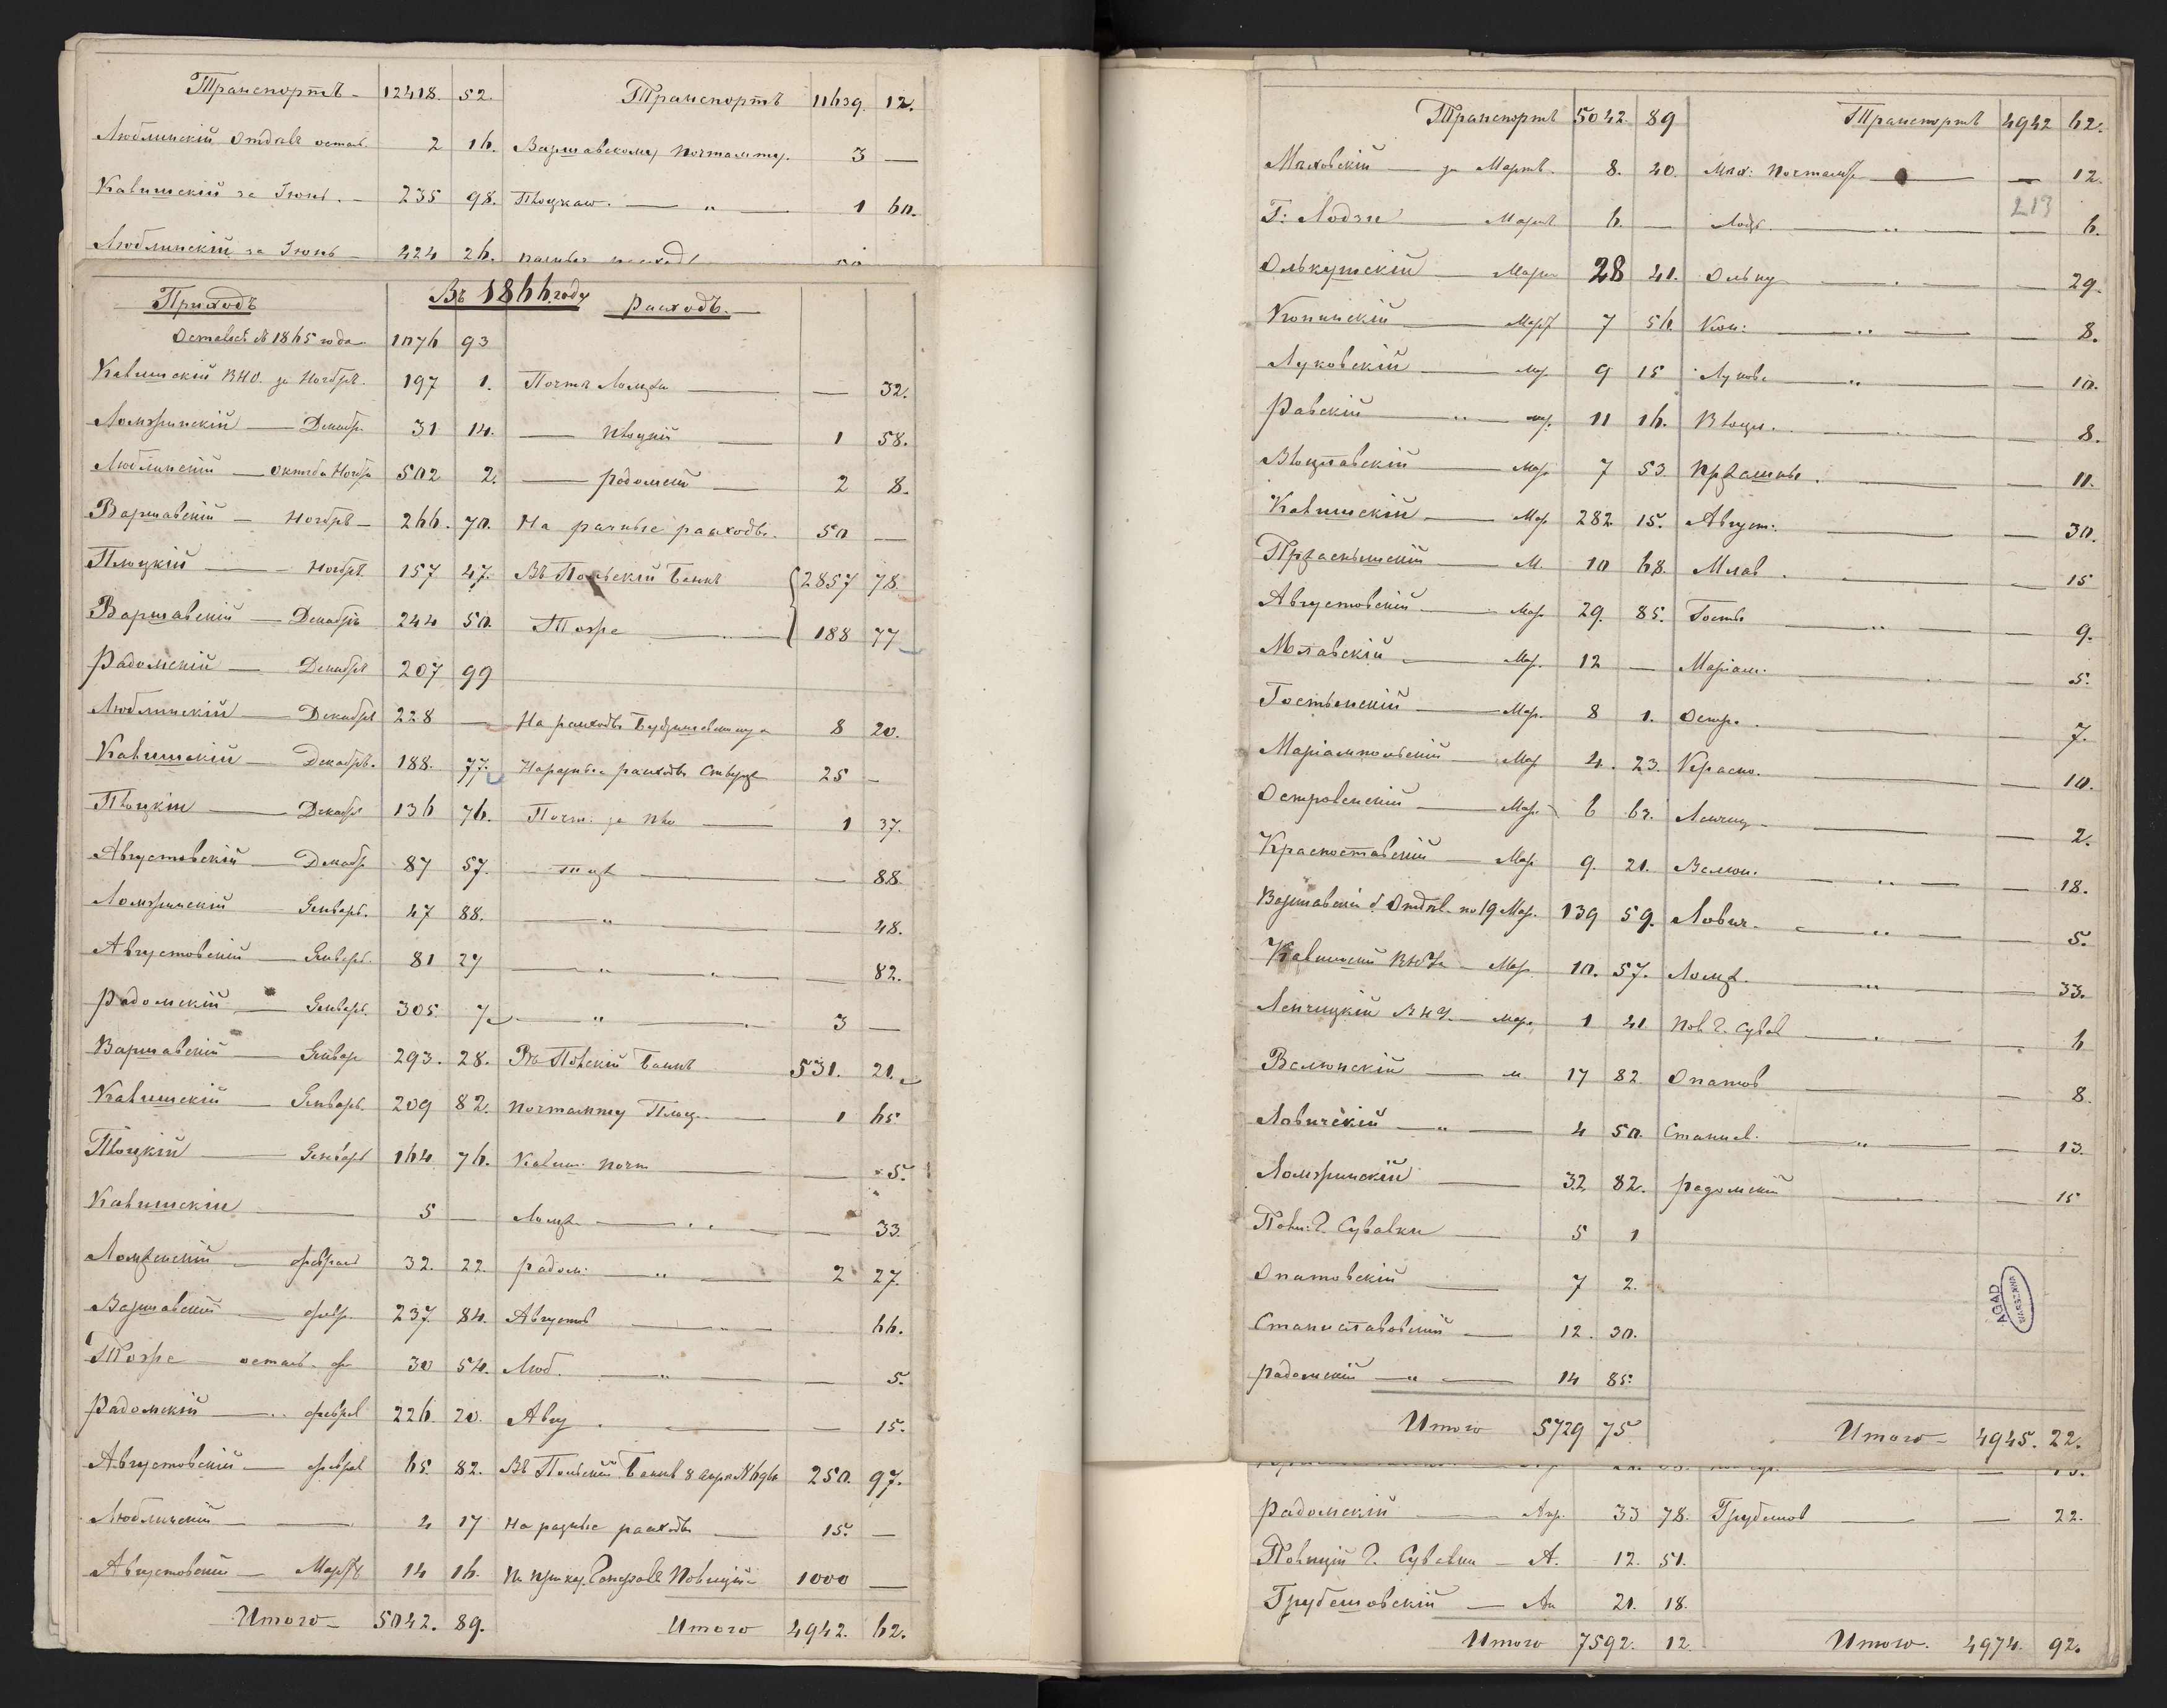 Транспортъ - 12418. 52. Транспортъ 11639. 12.
Люблинскій Отдѣлъ остав. 2 16. Варшавскому Почтамту. 3 —
Калишскій за Іюнь. - 235 98. Плоцкому. — " — 1 60.
Люблинскій за Іюнь - 424 26.
Приходъ Въ 1866 году Расходъ. —
Осталось отъ 1865 года 1076 93
Калишскій ВНО. за Ноябрь. 197 1. Почтѣ Ломжа — — 32.
Ломжинскій — Декабр. 31 14. — Плоцкій — 1 58.
Люблинскій — Октяб. Нояб. 502 2. — Радомскій — 2 8.
Варшавскій — Ноябрь — 266. 70. На разные расходы. 50 —
Плоцкій — Ноябрь. 157 47. Въ Польскій Банкъ 2857 78.
Варшавскій — Декабрь 244 50. Тоже — 188 77
Радомскій — Декабрь 207 99
Люблинскій — Декабрь 228 — На расходы 8 20.
Калишскій — Декабрь. 188. 77. На разные расходы 25 —
Плоцкій — Декабр 136 76. Почт: за Пло — 1 37.
Августовскій — Декабр 87 57. — тоже — — 88.
Ломжинскій Январь. 47 88. — " — — 48.
Августовскій — Январь. 81 27 — " — — 82.
Радомскій — Январь. 305. 7 — " — 3 —
Варшавскій — Январ 293. 28. Въ Польскій Банкъ 531. 21.
Калишскій — Январь. 209 82. Почтамту Плоц. — 1 65.
Плоцкій — Январь 164. 76. Калиш. Почт — 5.
Калишскій — 5 — Ломж. — — 33.
Ломженскій — Феврал 32. 22. Радом: — " — 2 27.
Варшавскій — Февр. 237. 84. Августов — 66.
Тоже — остал. Фе 30 54. Люб. — " — — 5.
Радомскій — Феврал 226. 20. Авгу. — — 15.
Августовскій — Феврал 65. 82. Въ Польскій Банкъ 8 Апр. № 250. 97.
Люблинскій — 4 17 На разные расходы — 15. —
Августовскій — Мартъ 14 16. По приказ. Генерала Полиціи 1000 —
Итого — 5042. 89. Итого 4942. 62.
Транспортъ 5042. 89 Транспортъ 4942 62.
Мѣховскій — за Мартъ. 8. 40. Мѣх: Почтамт — — 12.
213
Г: Лодзи — Мартъ 6. — Лодз. — " — — 6.
Олькушскій — Март 28 41. Ольку — — 29.
Конинскій — Март 7 56. Кон: — " — — 8.
Луковскій — Мар 9 15 Луков. — " — — 10.
Равскій — " — мар. 11 16. Влоцл. — — 8.
Влоцлавскій — Мар 7 53. Прзасныш. — — 11.
Калишскій — Мар 282 15. Август: — — 30.
Прзаснышскій — М. 10 68. Млав. — — 15
Августовскій — Мар 29. 85. Гостын — " — — 9.
Млавскій — Мар. 12 — Маріам. — — 5.
Гостынскій — Мар. 8 1. Остро. — — 7.
Маріампольскій — Мар 4. 23. Красно. — — 10.
Островскій — Мар. 6 62. Ленчиц — — 2.
Красноставскій — Мар 9. 21. Велюн. — " — — 18.
Варшавскій Отдѣл. по 19 Мар. 139 59. Лович. — " — — 5.
Калишскій — Мар. 10. 57. Ломж. — " — — 33.
Ленчицкій В Н У. — Мар. 1 41 Пол. Г. Сувал — — 6
Велюнскій — м. 17 82 Опатов — — 8.
Ловичскій — " — 4 50. Станисл. — " — — 13.
Ломжинскій — 32 82. Радомскій — — 15
Полиц: Г. Сувалки — 5 1
Опатовскій — 7 2.
Станиславовскій — 12. 30.
Радомскій — " — 14 85.
AGAD
WARSZAWA
Итого 5729 75 Итого — 4945. 22.
Радомскій — Апр. 33 78. Грубешов — — 22.
Полиціи Г. Сувалки — А. 12. 51.
Грубешовскій — Ап 21. 18.
Итого 7592. 12. Итого. 4974. 92.